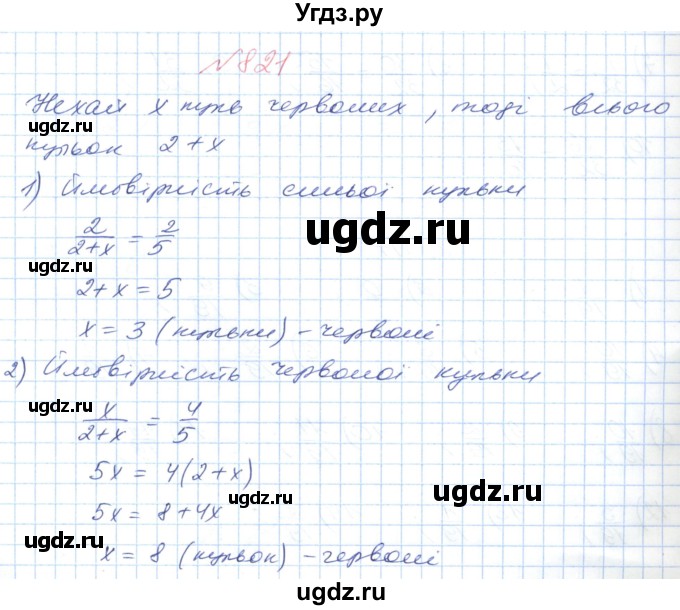 Угдз.ру
№821
Нехай x куль червоних, тоді всього
ugdz.ru
кульок 2+x
1) Ймовірність синьої кульки
ugdz.ru
2/(2+x) = 2/5
ugdz.ru
2+x = 5
x = 3 (кульки) - червоні
2) Ймовірність червоної кульки
ugdz.ru
x/(2+x) = 4/5
5x = 4(2+x)
ugdz.ru
ugdz.ru
5x = 8+4x
ugdz.ru
x = 8 (кульок) - червоні
ugdz.ru